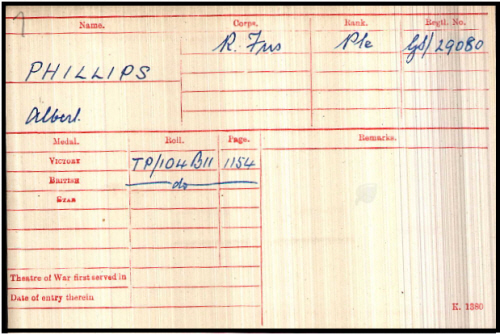 Name. Corps. Rank. Regtl. No.
R. Fus Pte GS/29080
PHILLIPS
Albert.
Medal. Roll. Page. Remarks.
VICTORY TP/104B11 1154
BRITISH do
STAR
Theatre of War first served in
Date of entry therein
K. 1380